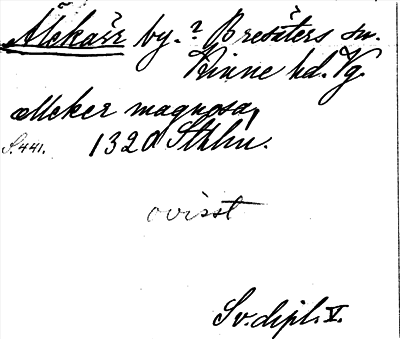 Mekasr by. ? Bresäters sn.
Kinne hd. Vg.
Meker magnosa,
S. 441. 1320 Sthlm.
ovisst
Sv. dipl. V.